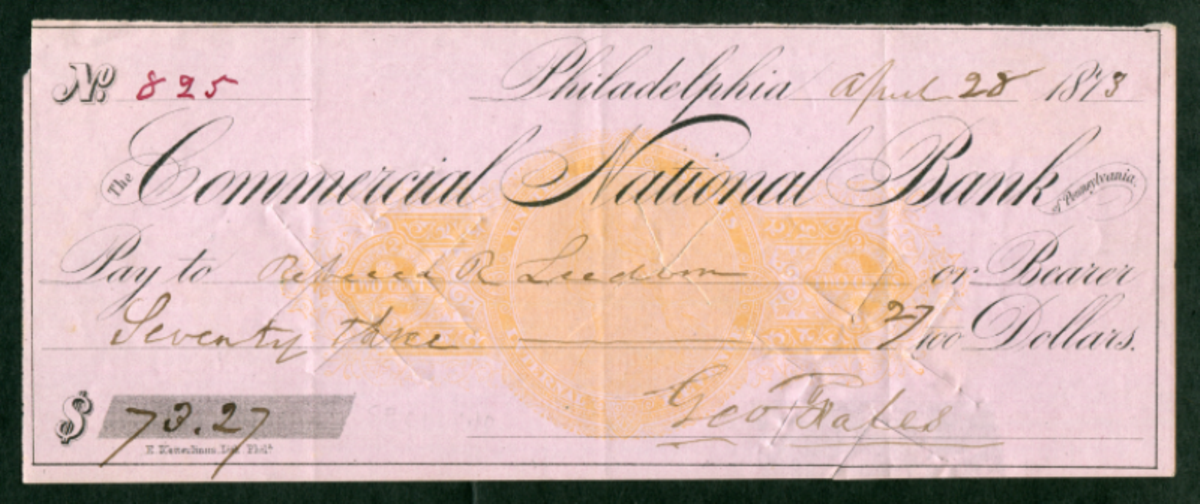 No. 825 Philadelphia April 28 1873
The Commercial National Bank of Pennsylvania.
Pay to Rebecca R Leedom or Bearer
Seventy three 27/100 Dollars.
$ 73.27
Geo
TWO CENTS TWO CENTS